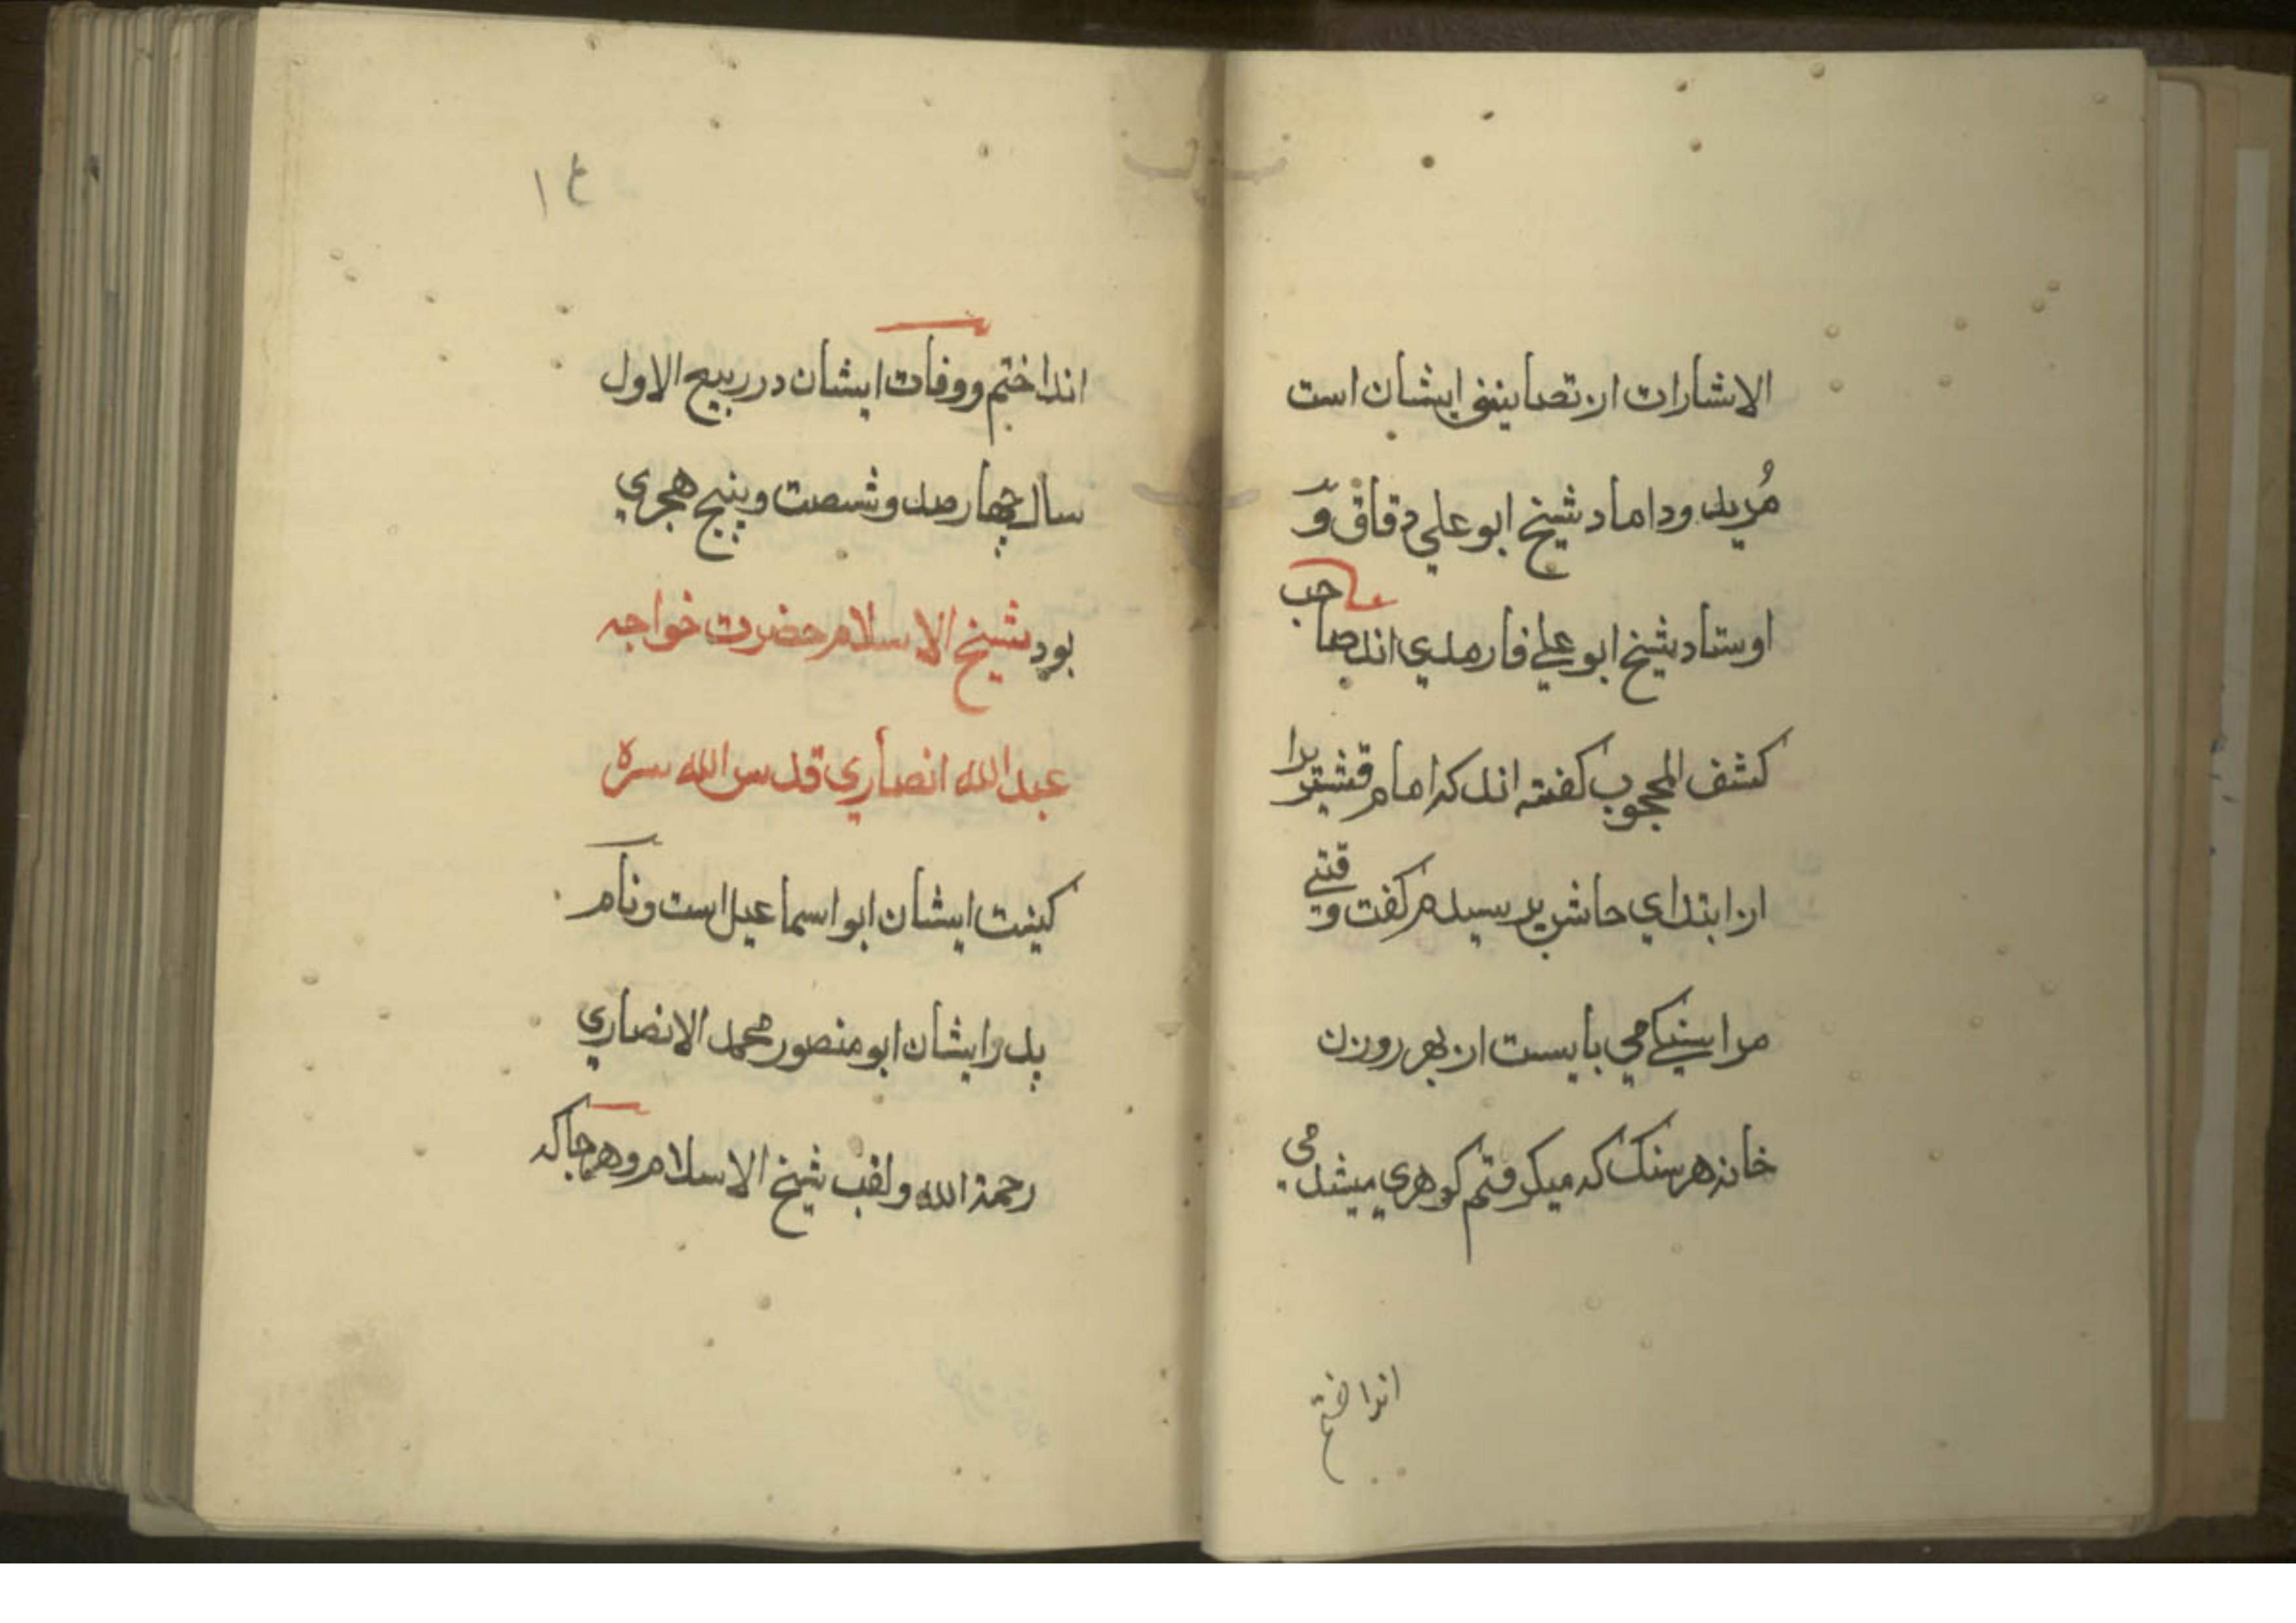 الاشارات از تصانیف ایشان است
مُرید و داماد شیخ ابو علي دقاق و
اوستاد شیخ ابو علي فارمدي اند صاحب
کشف المحجوب کفته اند که امام قشیریرا
از ابتداي حالش پرسیدم کفت وقتی
مرا سنکی مي بایست از بهر روزن
خانه هر سنک که میکرفتم کوهري میشد مي
انداختم
۱۴
انداختم و وفات ایشان در ربیع الاول
سال چهار صد و شصت و پنج هجري
بود شیخ الاسلام حضرت خواجه
عبد الله انصاري قدس الله سره
کنیت ایشان ابو اسماعیل است و نام
پدر ایشان ابو منصور محمد الانصاري
رحمة الله و لقب شیخ الاسلام و هر جا که